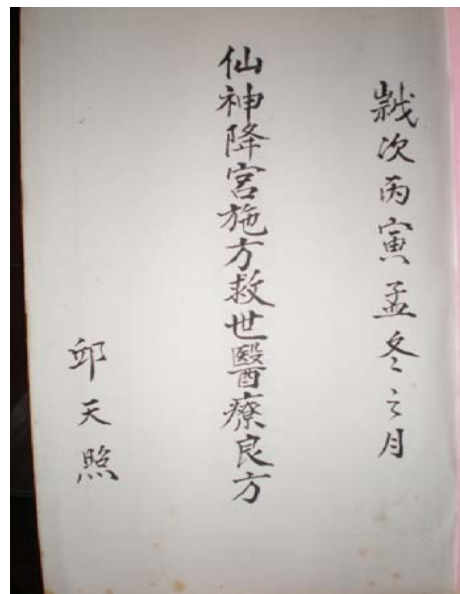 歲次丙寅孟冬之月
仙神降宮施方救世醫療良方
邱天照